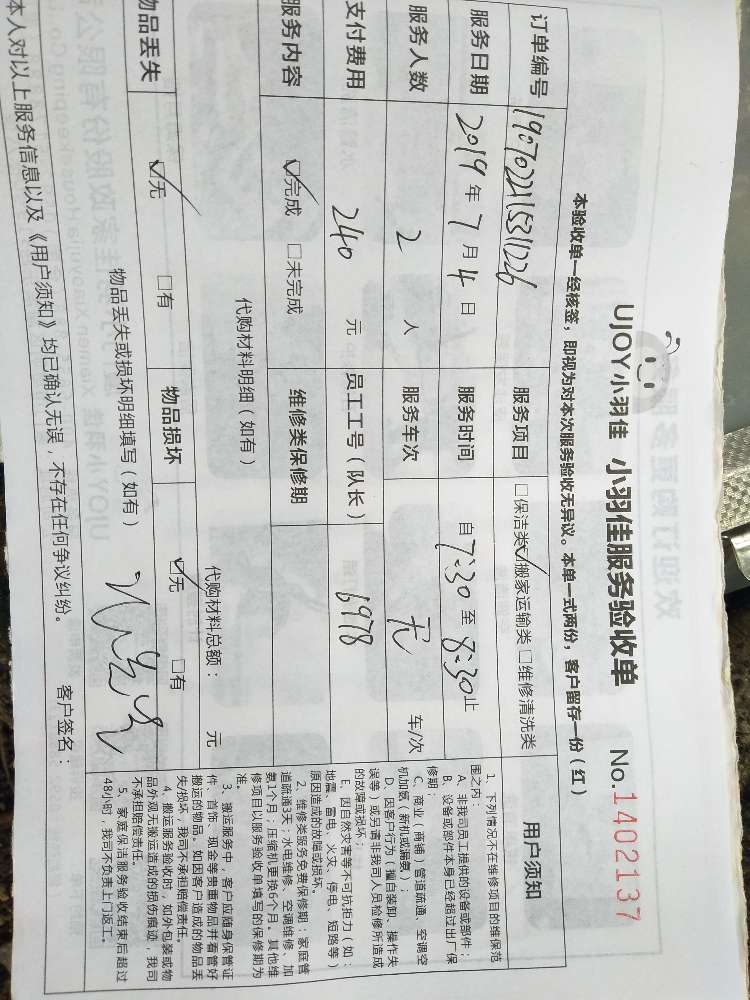 UJOY小羽佳 小羽佳服务验收单 No.1402137
本验收单一经核签，即视为对本次服务验收无异议。本单一式两份，客户留存一份（红）
订单编号 190702211531226 服务项目 □保洁类☑搬家运输类□维修清洗类
服务日期 2019年7月4日 服务时间 自7:30至8:30止
服务人数 2人 服务车次 无 车/次
支付费用 240元 员工工号（队长） 6978
服务内容 ☑完成 □未完成 维修类保修期
代购材料明细（如有） 代购材料总额： 元
物品丢失 ☑无 □有 物品损坏 ☑无 □有
物品丢失或损坏明细填写（如有）
本人对以上服务信息以及《用户须知》均已确认无误，不存在任何争议纠纷。 客户签名：
用户须知
1、下列情况不在维修项目的维保范
围之内：
A、非我司员工提供的设备或部件；
B、设备或部件本身已经超过出厂保
修期；
C、商业（商铺）管道疏通、空调空
机加氨（新机或漏氨）；
D、因客户行为（擅自装卸、操作失
误等）或另请非我司人员检修所造成
的故障或损坏；
E、因自然灾害等不可抗拒力（如：
地震、雷电、火灾、停电、短路等）
原因造成的故障或损坏。
2、维修类服务免费保修期：家庭管
道疏通3天；水电维修、空调维修、加
氨1个月；压缩机更换6个月。其他维
修项目以服务验收单填写的保修期为
准。
3、搬运服务中，客户应随身保管证
件、首饰、现金等贵重物品并看管好
搬运的物品。如因客户造成的物品丢
失/损坏，我司不承担赔偿责任。
4、搬运服务验收时，如外包装或物
品外观无搬运造成的损伤痕迹，我司
不承担赔偿责任。
5、家庭保洁服务验收结束后超过
48小时，我司不负责上门返工。